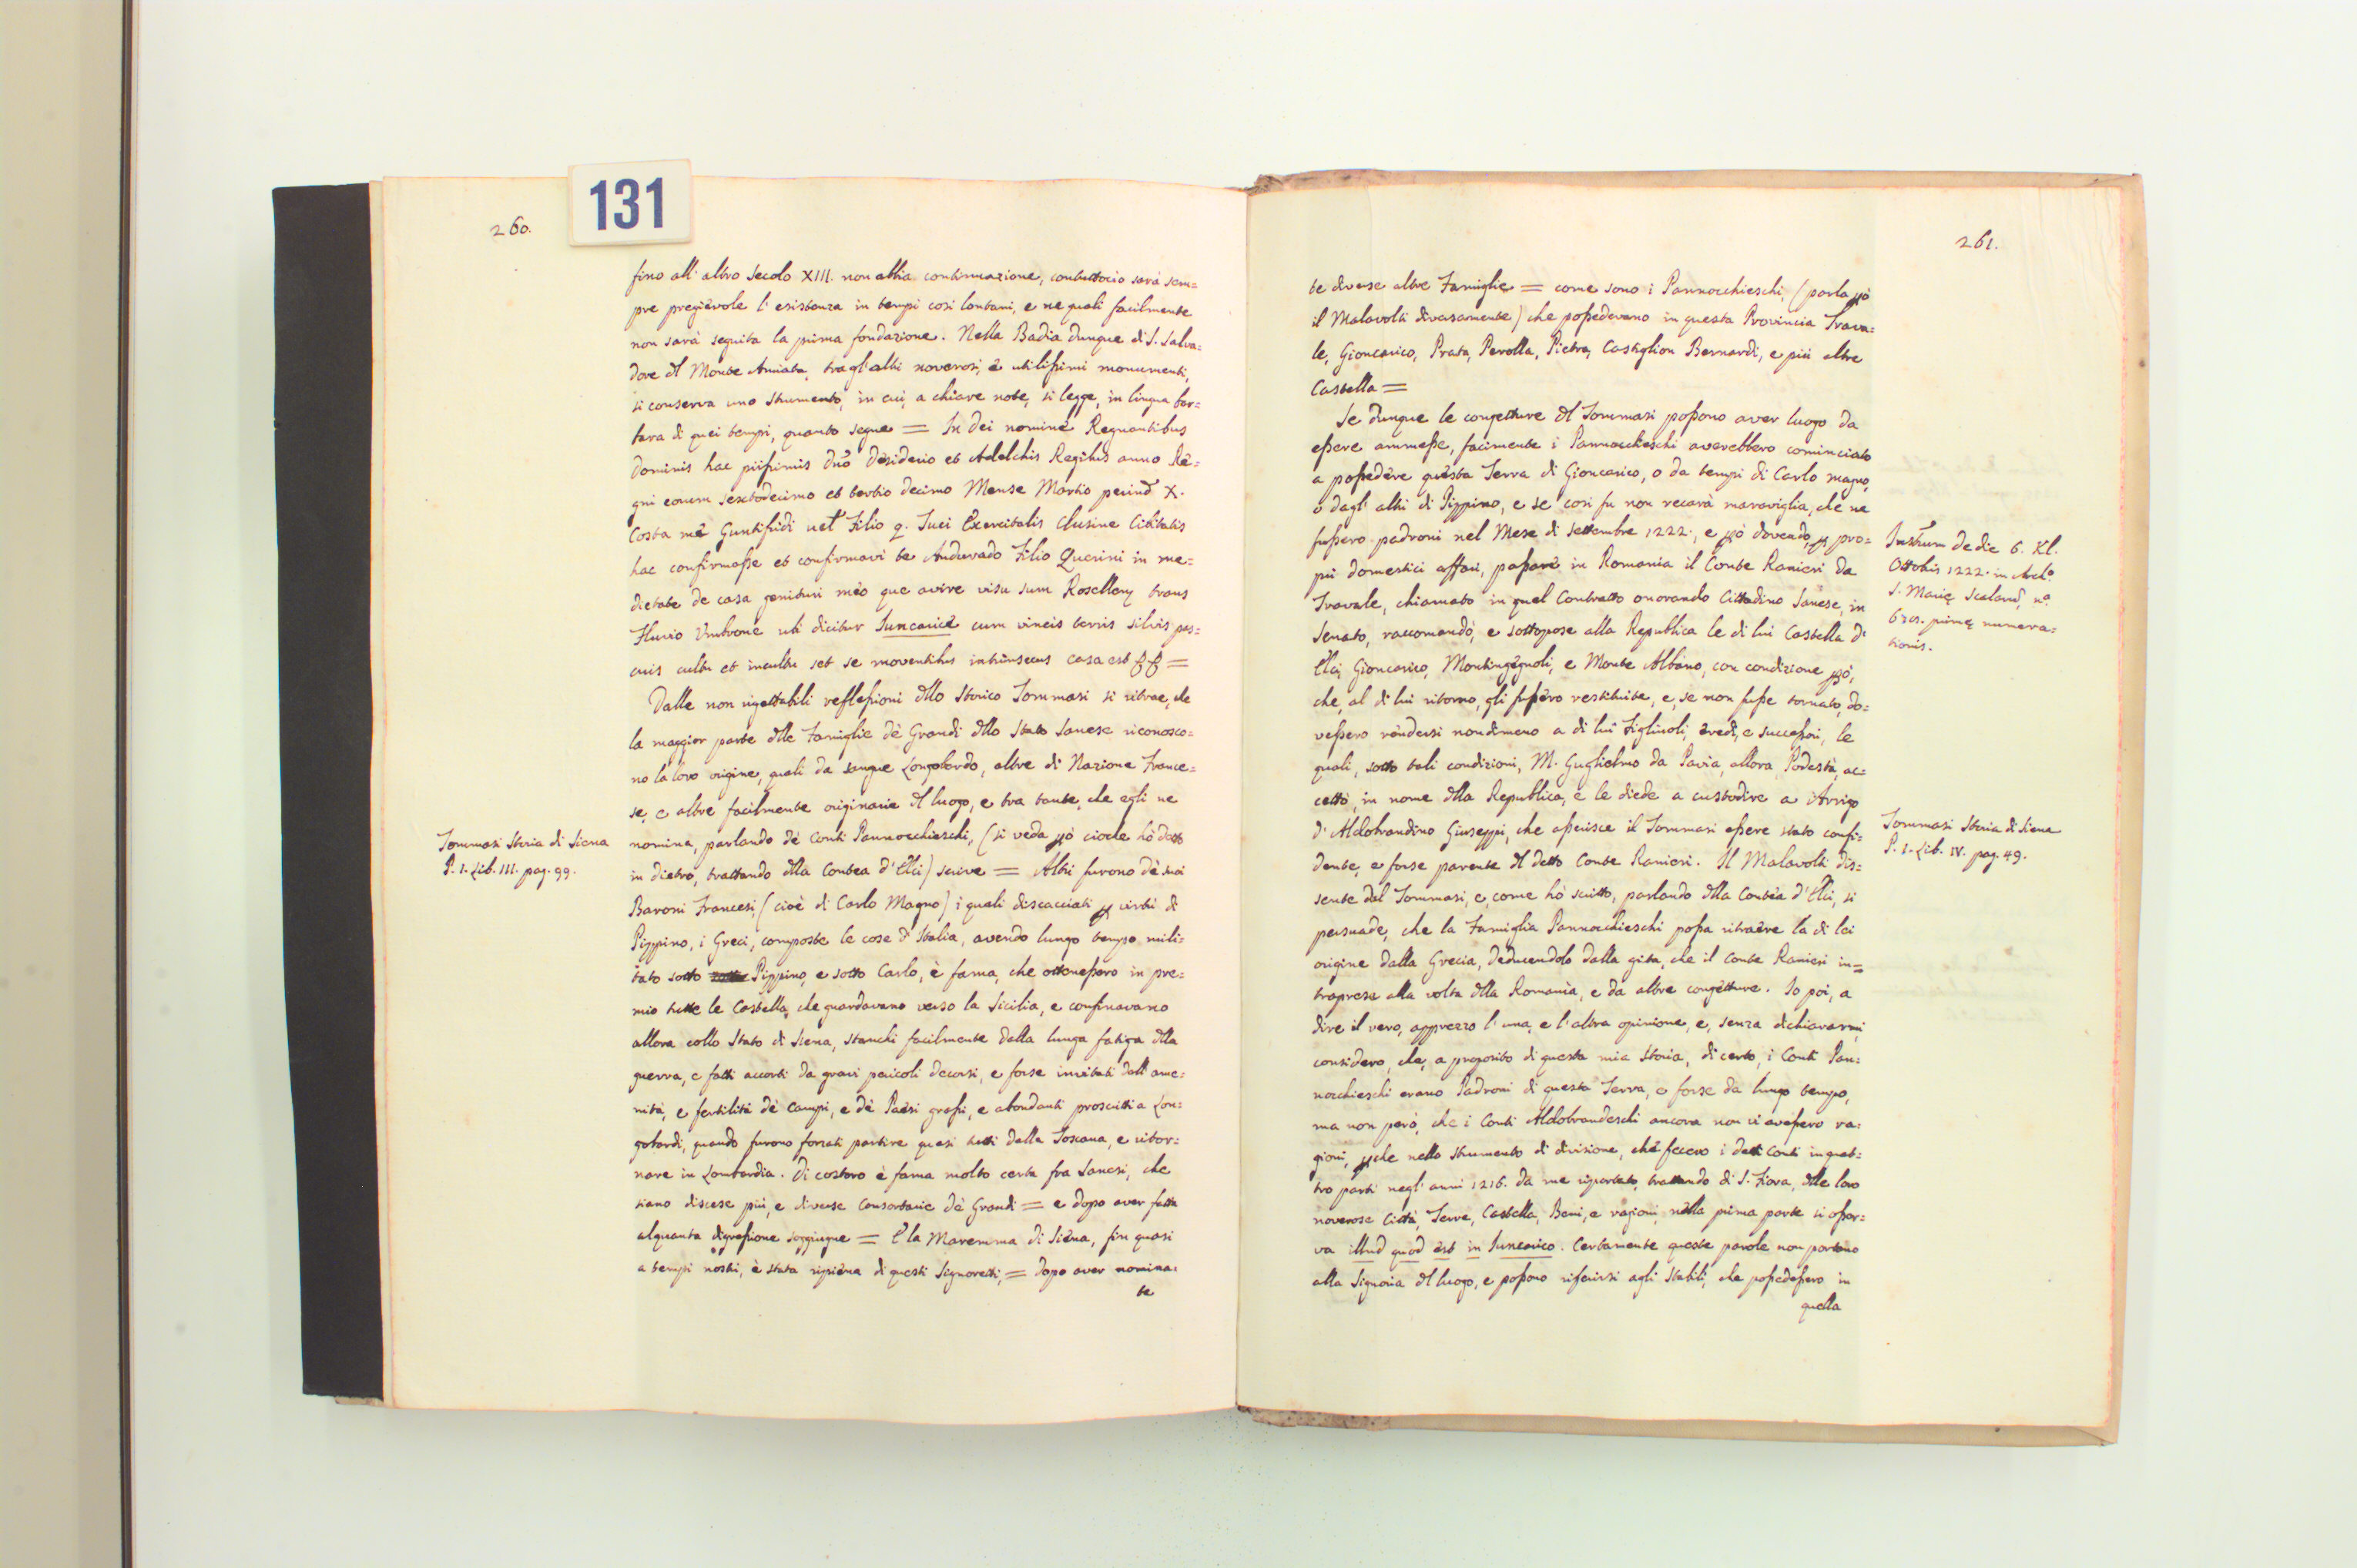 260.
131
fino all' altro secolo XIII. non abbia continuazione, contuttociò sarà sem=
pre pregievole l' esistenza in tempi così lontani, e ne quali facilmente
non sarà seguita la prima fondazione. Nella Badia dunque di S. Salva=
dore dl Monte Amiata, tra gl' altri noverosi, e utilissimi monumenti,
si conserva uno strumento, in cui, a chiare note, si legge, in lingua bar=
bara di quei tempi, quanto segue = In Dei nomine Regnantibus
dominis hac piissimis dno Desiderio et Adelchis Regibus anno Re=
gni eorum sextodecimo et tertio decimo Mense Martio per ind X.
Costa me Guntifridi Filio q. Iuci Exercitalis Clusine Cibitatis
hac confirmasse et confirmavi te Anduvado Filio Querini in me=
dietate de casa genituri meo que avire visu sum Rosellens trans
Fluvio Umbrone ubi dicitur Iuncarice cum vineis terris silvis pas=
cuis cultu et incultu set se moventibus intrinsecus casa est =
Dalle non rigettabili reflessioni dllo Storico Tommasi si ritrae, che
la maggior parte dlle Famiglie dè Grandi dllo Stato Sanese riconosco=
no la loro origine, quali da sangue Longobardo, altre di Nazione France=
se, e altre facilmente originarie dl luogo, e tra tante, che egli ne
nomina, parlando dè Conti Pannocchieschi, (si veda pò ciocche hò detto
in dietro, trattando dlla Contea d' Elci) scrive = Altri furono dè suoi
Baroni Francesi, (cioè di Carlo Magno) i quali discacciati p virtù di
Pippino, i Greci, composte le cose d' Italia, avendo lungo tempo mili=
tato sotto Pippino, e sotto Carlo, è fama, che ottenessero in pre=
mio tutte le Castella, che guardavano verso la Sicilia, e confinavano
allora collo Stato di Siena, stanchi facilmente dalla lunga fatiga dlla
guerra, e fatti accorti da gravi pericoli decorsi, e forse invitati dall' ame=
nità, e fertilità dè Campi, e dè Paesi grassi, e abondanti proscritti a Lon=
gobardi, quando furono forzati partire quasi tutti dalla Toscana, e ritor=
nare in Lombardia. Di costoro è fama molto certa fra Sanesi, che
siano discese più, e diverse Consorterie dè Grandi = e dopo aver fatta
alquanta digressione soggiugne = E la Maremma di Siena, fin quasi
a tempi nostri, è stata ripiena di questi Signoretti, = dopo aver nomina=
te
Tommasi Storia di Siena
P. I. Lib. III. pag. 99.
261.
te diverse altre Famiglie = come sono i Pannocchieschi, (parla pò
il Malavolti divisamente) che possedevano in questa Provincia Trava=
le, Gioncarico, Prata, Perolla, Pietra, Castiglion Bernardi, e più altre
Castella =
Se dunque le congetture dl Tommasi possono aver luogo da
essere ammesse, facimente i Pannocchieschi averebbero cominciato
a possedere questa Terra di Gioncarico, o da tempi di Carlo magno,
o dagl' altri di Pippino, e se così fu non recarà maraviglia, che ne
fussero padroni nel Mese di Settembre 1222., e pò dovendo, p pro=
pii domestici affari, passare in Romania il Conte Ranieri da
Travale, chiamato in quel Contratto onorando Cittadino Sanese, in
Senato, raccomandò, e sottopose alla Republica le di lui Castella d'
Elci, Gioncarico, Montingegnoli, e Monte Albano, con condizione pò,
che, al di lui ritorno, gli fussero restituite, e, se non fusse tornato, do=
vessero rendersi nondimeno a di lui Figliuoli, eredi, e successori, le
quali, sotto tali condizioni, M. Guglielmo da Pavia, allora Podestà, ac=
cettò, in nome dlla Republica, e le diede a custodire a Arrigo
d' Aldobrandino Giuseppi, che asserisce il Tommasi essere stato confi=
dente, e forse parente dl detto Conte Ranieri. Il Malavolti dis=
sente dal Tommasi, e, come hò scritto, parlando dlla Contea d' Elci, si
persuade, che la Famiglia Pannocchieschi possa ritraere la di lei
origine dalla Grecia, deducendolo dalla gita, che il Conte Ranieri in=
trapresa alla volta dlla Romanìa, e da altre congetture. Io poi, a
dire il vero, apprezzo l' una, e l' altra opinione, e, senza dichiararmi,
considero, che, a proposito di questa mia Storia, di certo, i Conti Pan=
nocchieschi erano Padroni di questa Terra, e forse da lungo tempo,
ma non però, che i Conti Aldobrandeschi ancora non vi avessero ra=
gioni, pche nello strumento di divisione, che fecero i detti Conti in quat=
tro parti negl' anni 1216. da me riportato, trattando di S. Fiora, dlle loro
noverose Città, Terre, Castella, Beni, e ragioni, nella prima parte si osser=
va illud quod est in Iuncarico. Certamente queste parole non portano
alla Signoria dl luogo, e possono riferirsi agli Stabili, che possedessero in
quella
Instrum de die 6. Kl.
Ottobris 1222. in Archo
S. Marie Scalarum, no.
620. prime numera=
tionis.
Tommasi Storia di Siena
P. I. Lib. IV. pag. 49.